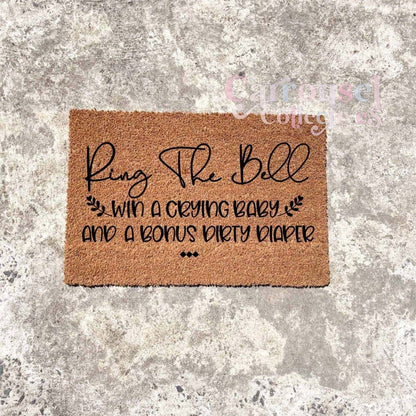 Carousel
Collective
Ring The Bell
WIN A CRYING BABY
AND A BONUS DIRTY DIAPER